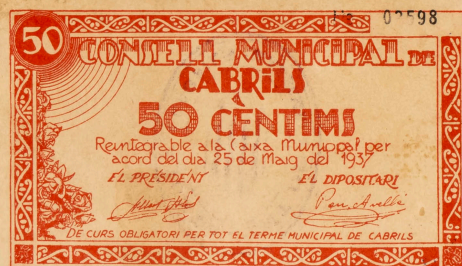 02598
50
CONSELL MUNICIPAL DE
CABRILS
50 CÈNTIMS
Reintegrable a la Caixa Municipal per
acord del dia 25 de Maig del 1937
EL PRESIDENT EL DIPOSITARI
DE CURS OBLIGATORI PER TOT EL TERME MUNICIPAL DE CABRILS